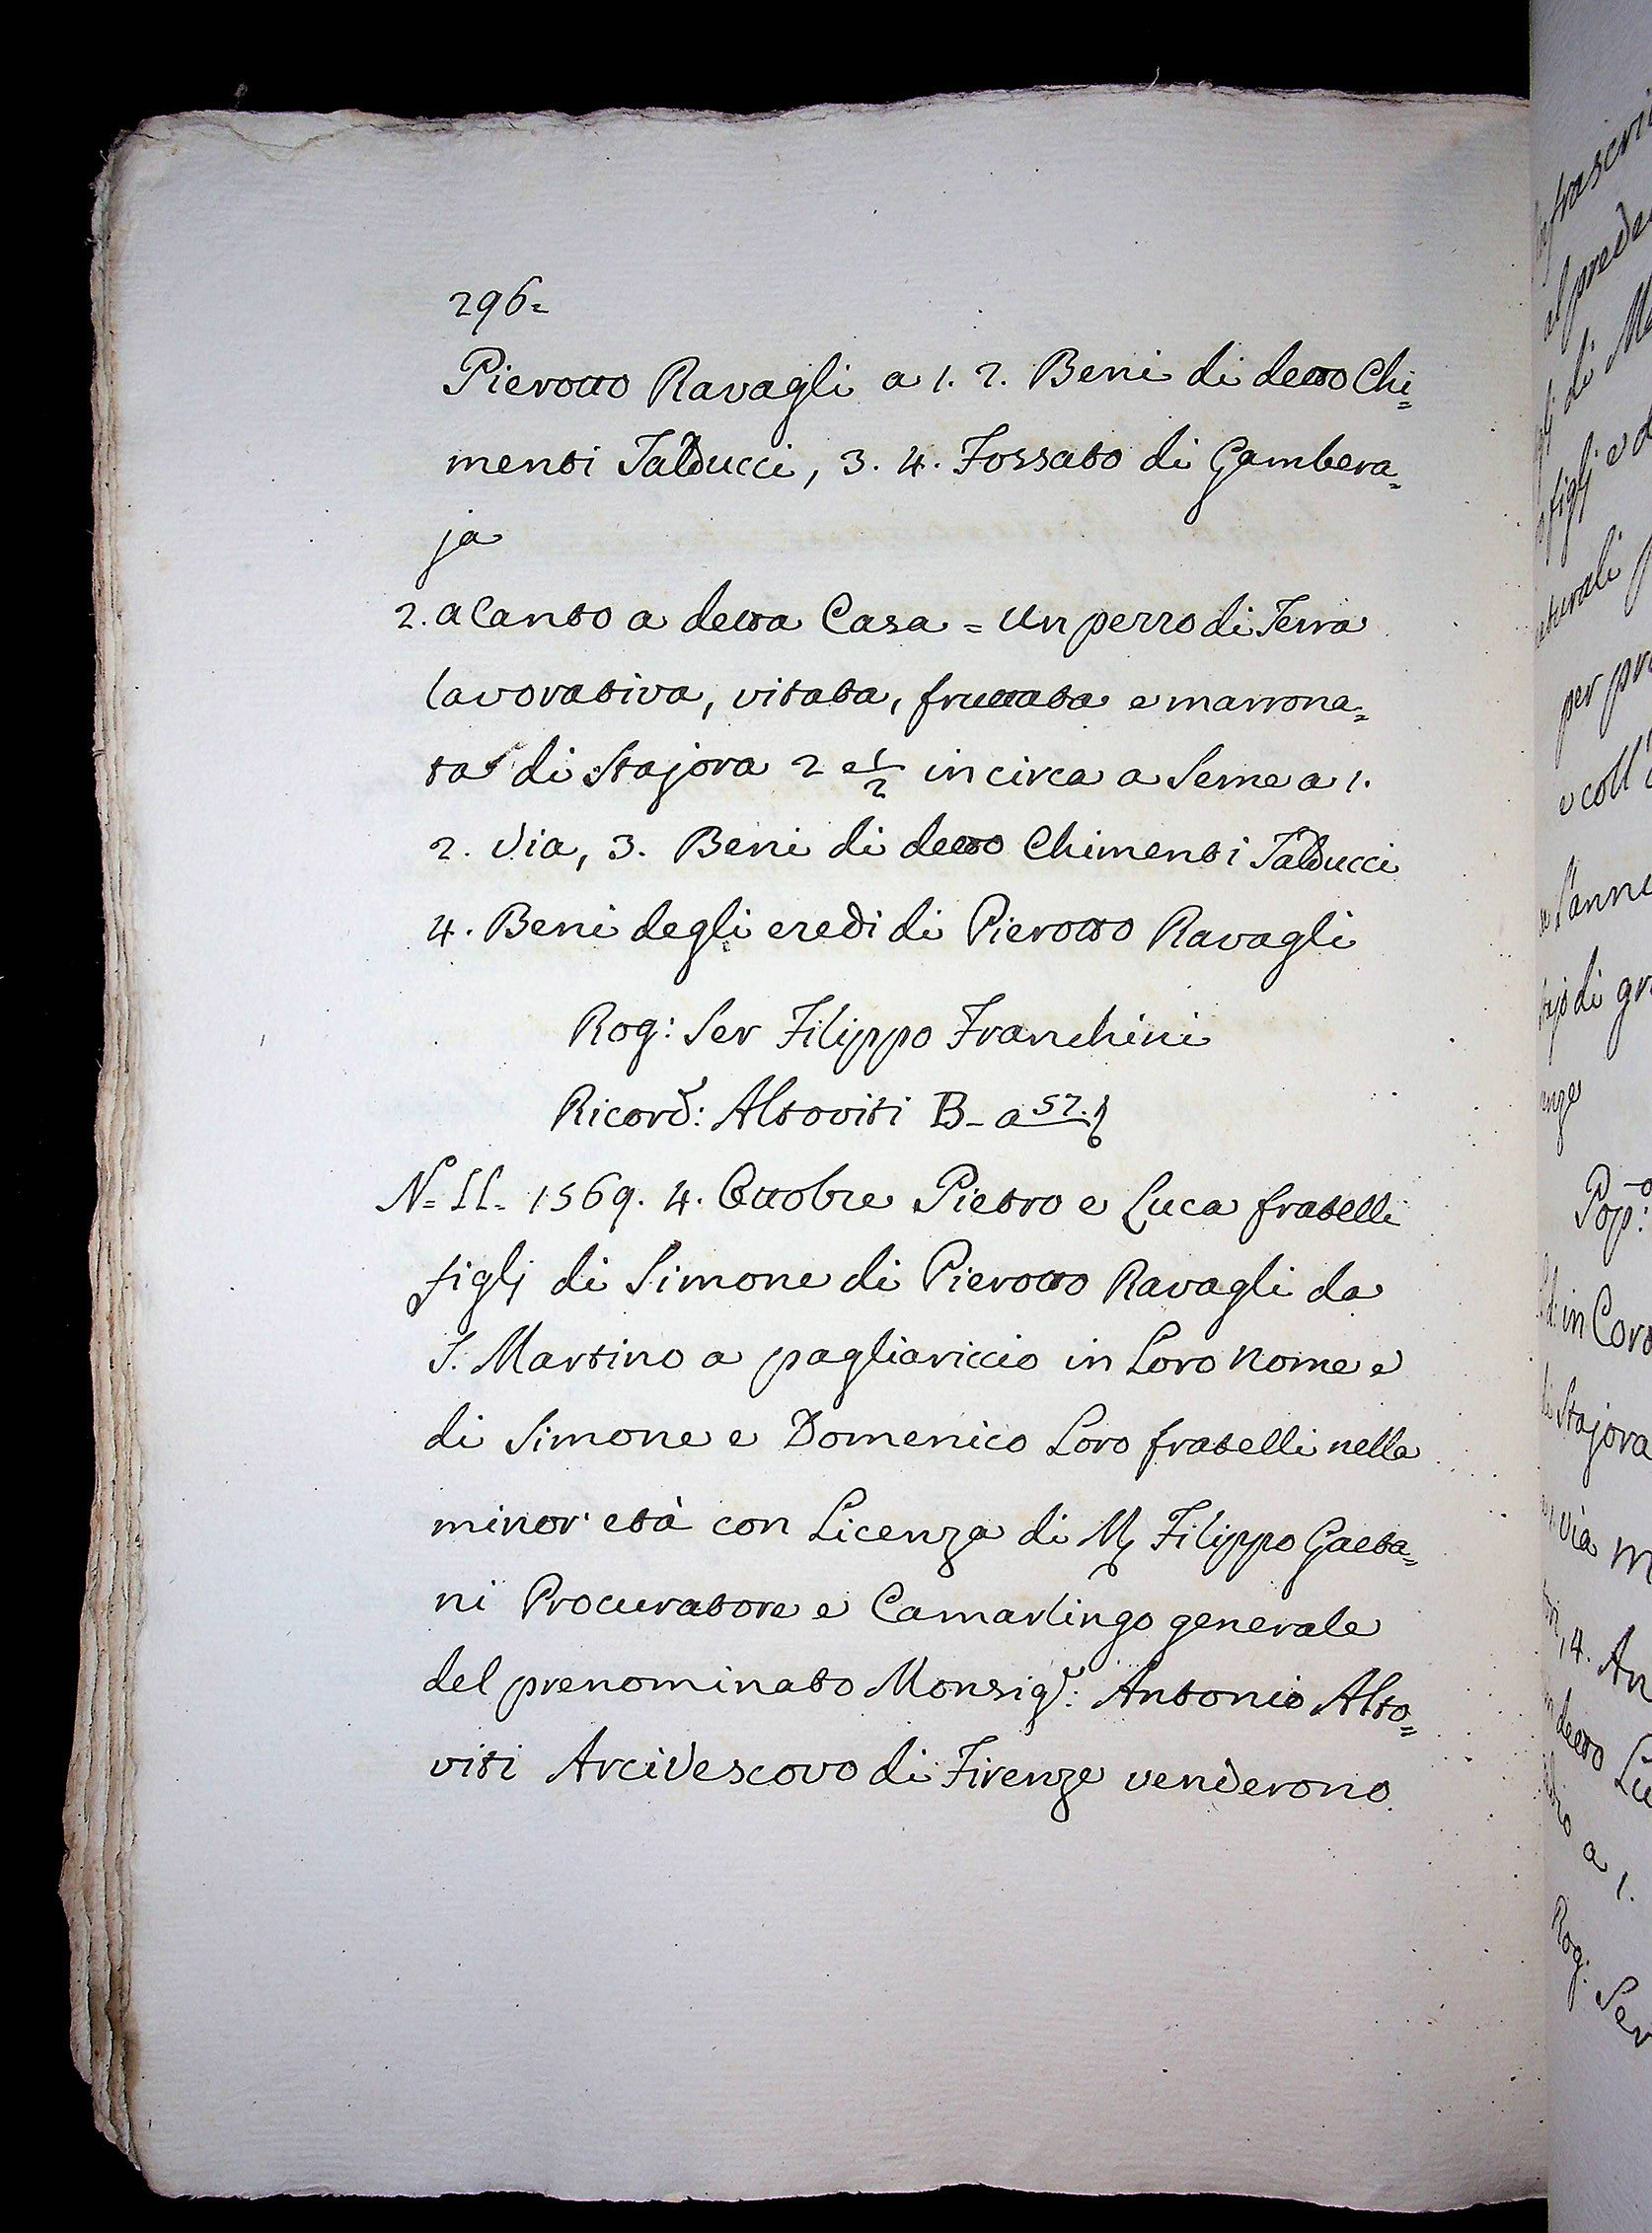 296=
Pierotto Ravagli a 1. 2. Beni di detto Chi=
menti Talducci, 3. 4. Fossato di Gambera=
ja
2. a Canto a detta Casa = Un pezzo di Terra
lavorativa, vitata, fruttata e marrona=
ta di Stajora 2 e 1/2 in circa a Seme a 1.
2. Via, 3. Beni di detto Chimenti Talducci
4. Beni degli eredi di Pierotto Ravagli
Rog: Ser Filippo Franchini
Ricord: Altoviti B- a 57.
N= II= 1569. 4. Ottobre Pietro e Luca fratelli
figlj di Simone di Pierotto Ravagli da
S. Martino a pagliariccio in Loro nome e
di Simone e Domenico Loro fratelli nella
minor età con Licenza di M Filippo Gaeta=
ni Procuratore e Camarlingo generale
del prenominato Monsigr: Antonio Alto=
viti Arcivescovo di Firenze venderono
Pop:
in
Stajora
via
4. An
detto
a 1.
Rog: Ser